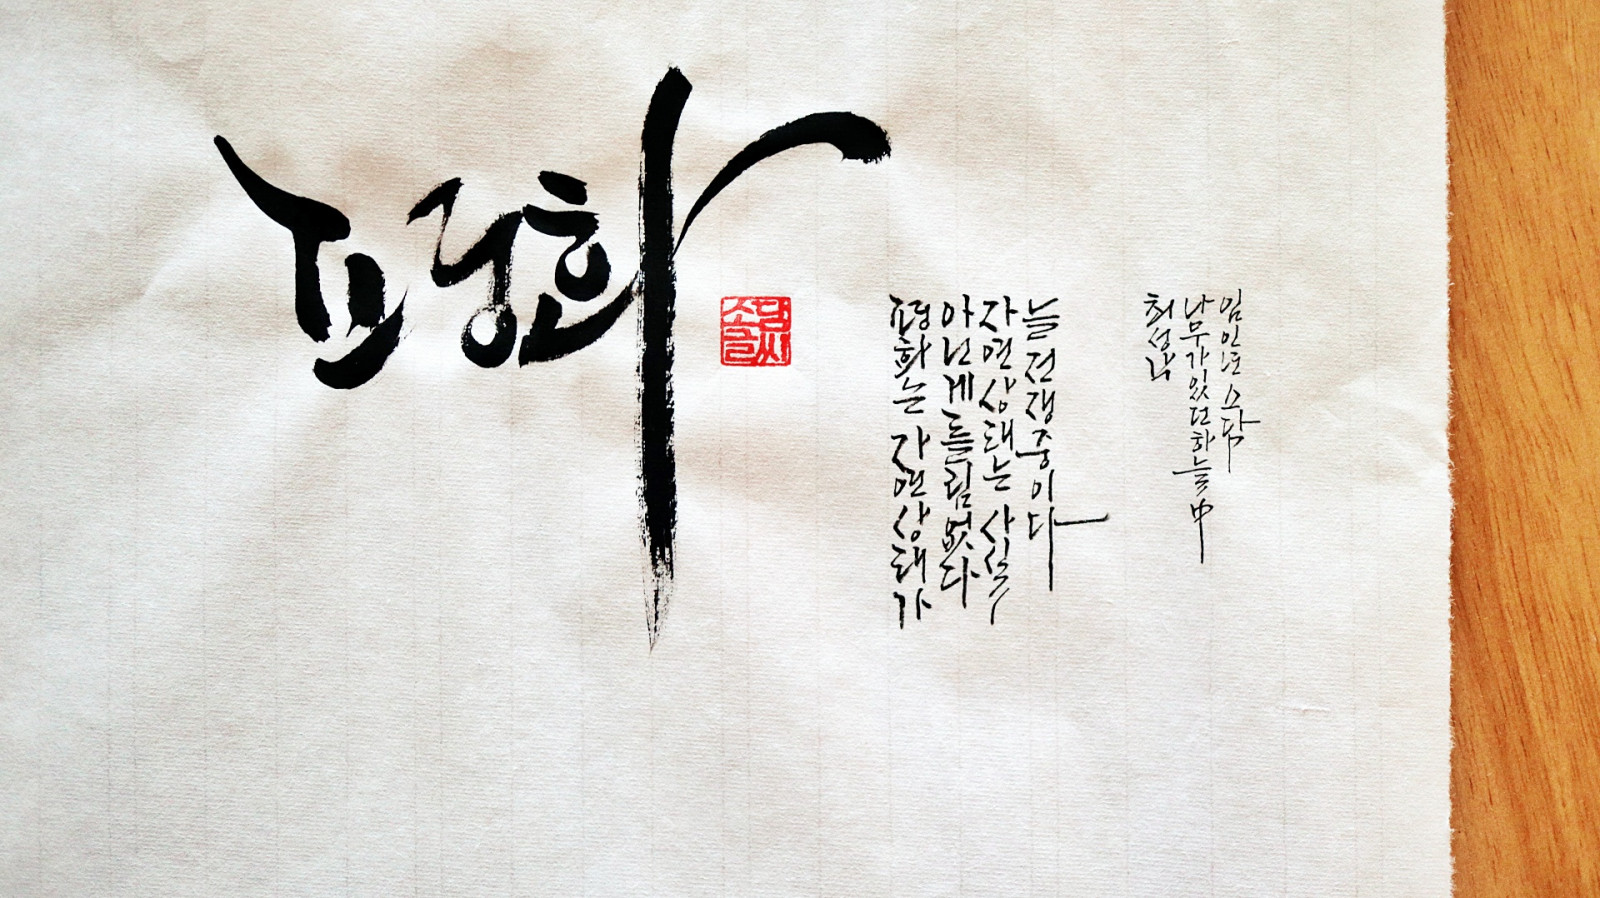 평화
소담
글씨
평화는 자연상태가
아닌게 틀림없다
자연상태는 사실
늘 전쟁중이다
최성각
나무가있던하늘 中
임인년 소담